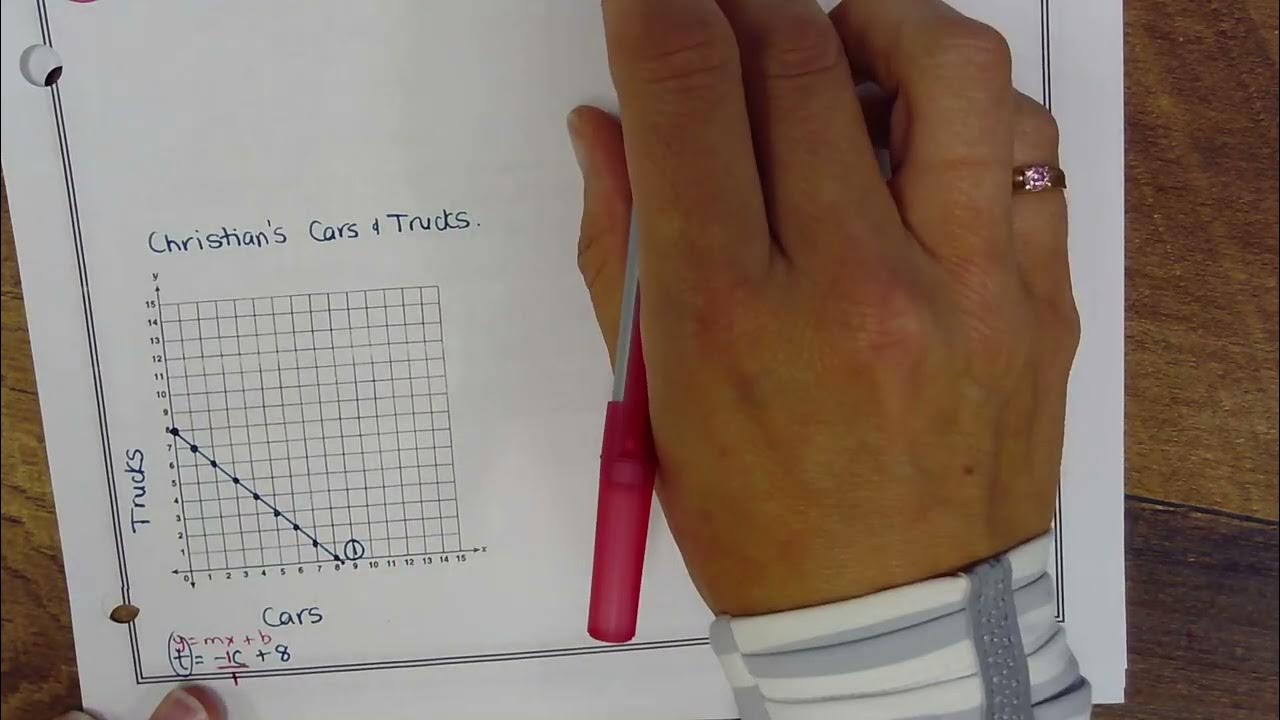 Christian's Cars & Trucks.
y
15
14
13
12
11
10
9
8
7
6
5
4
3
2
1
Trucks
①
0 1 2 3 4 5 6 7 8 9 10 11 12 13 14 15 x
Cars
y = mx + b
t = -1c + 8
1